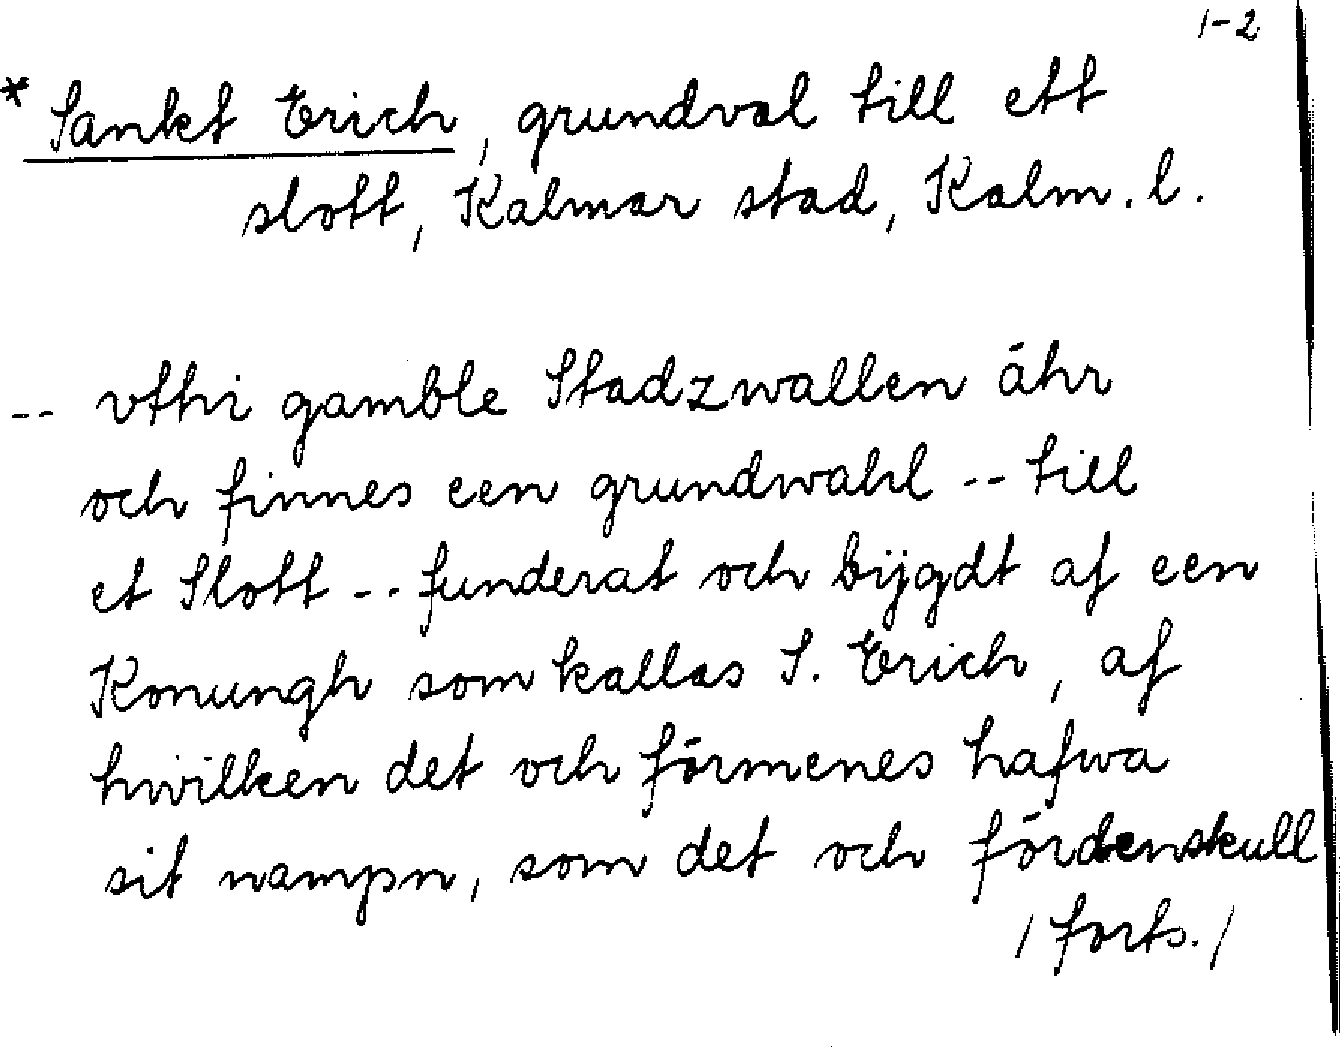 1-2
* Sankt Erich, grundval till ett
slott, Kalmar stad, Kalm. l.
-- vthi gamble Stadzwallen ähr
och finnes een grundwahl -- till
et Slott -- funderat och bijgdt af een
Konungh som kallas S. Erich, af
hwilken det och förmenes hafwa
sit nampn, som det och fördenskull
/ forts. /